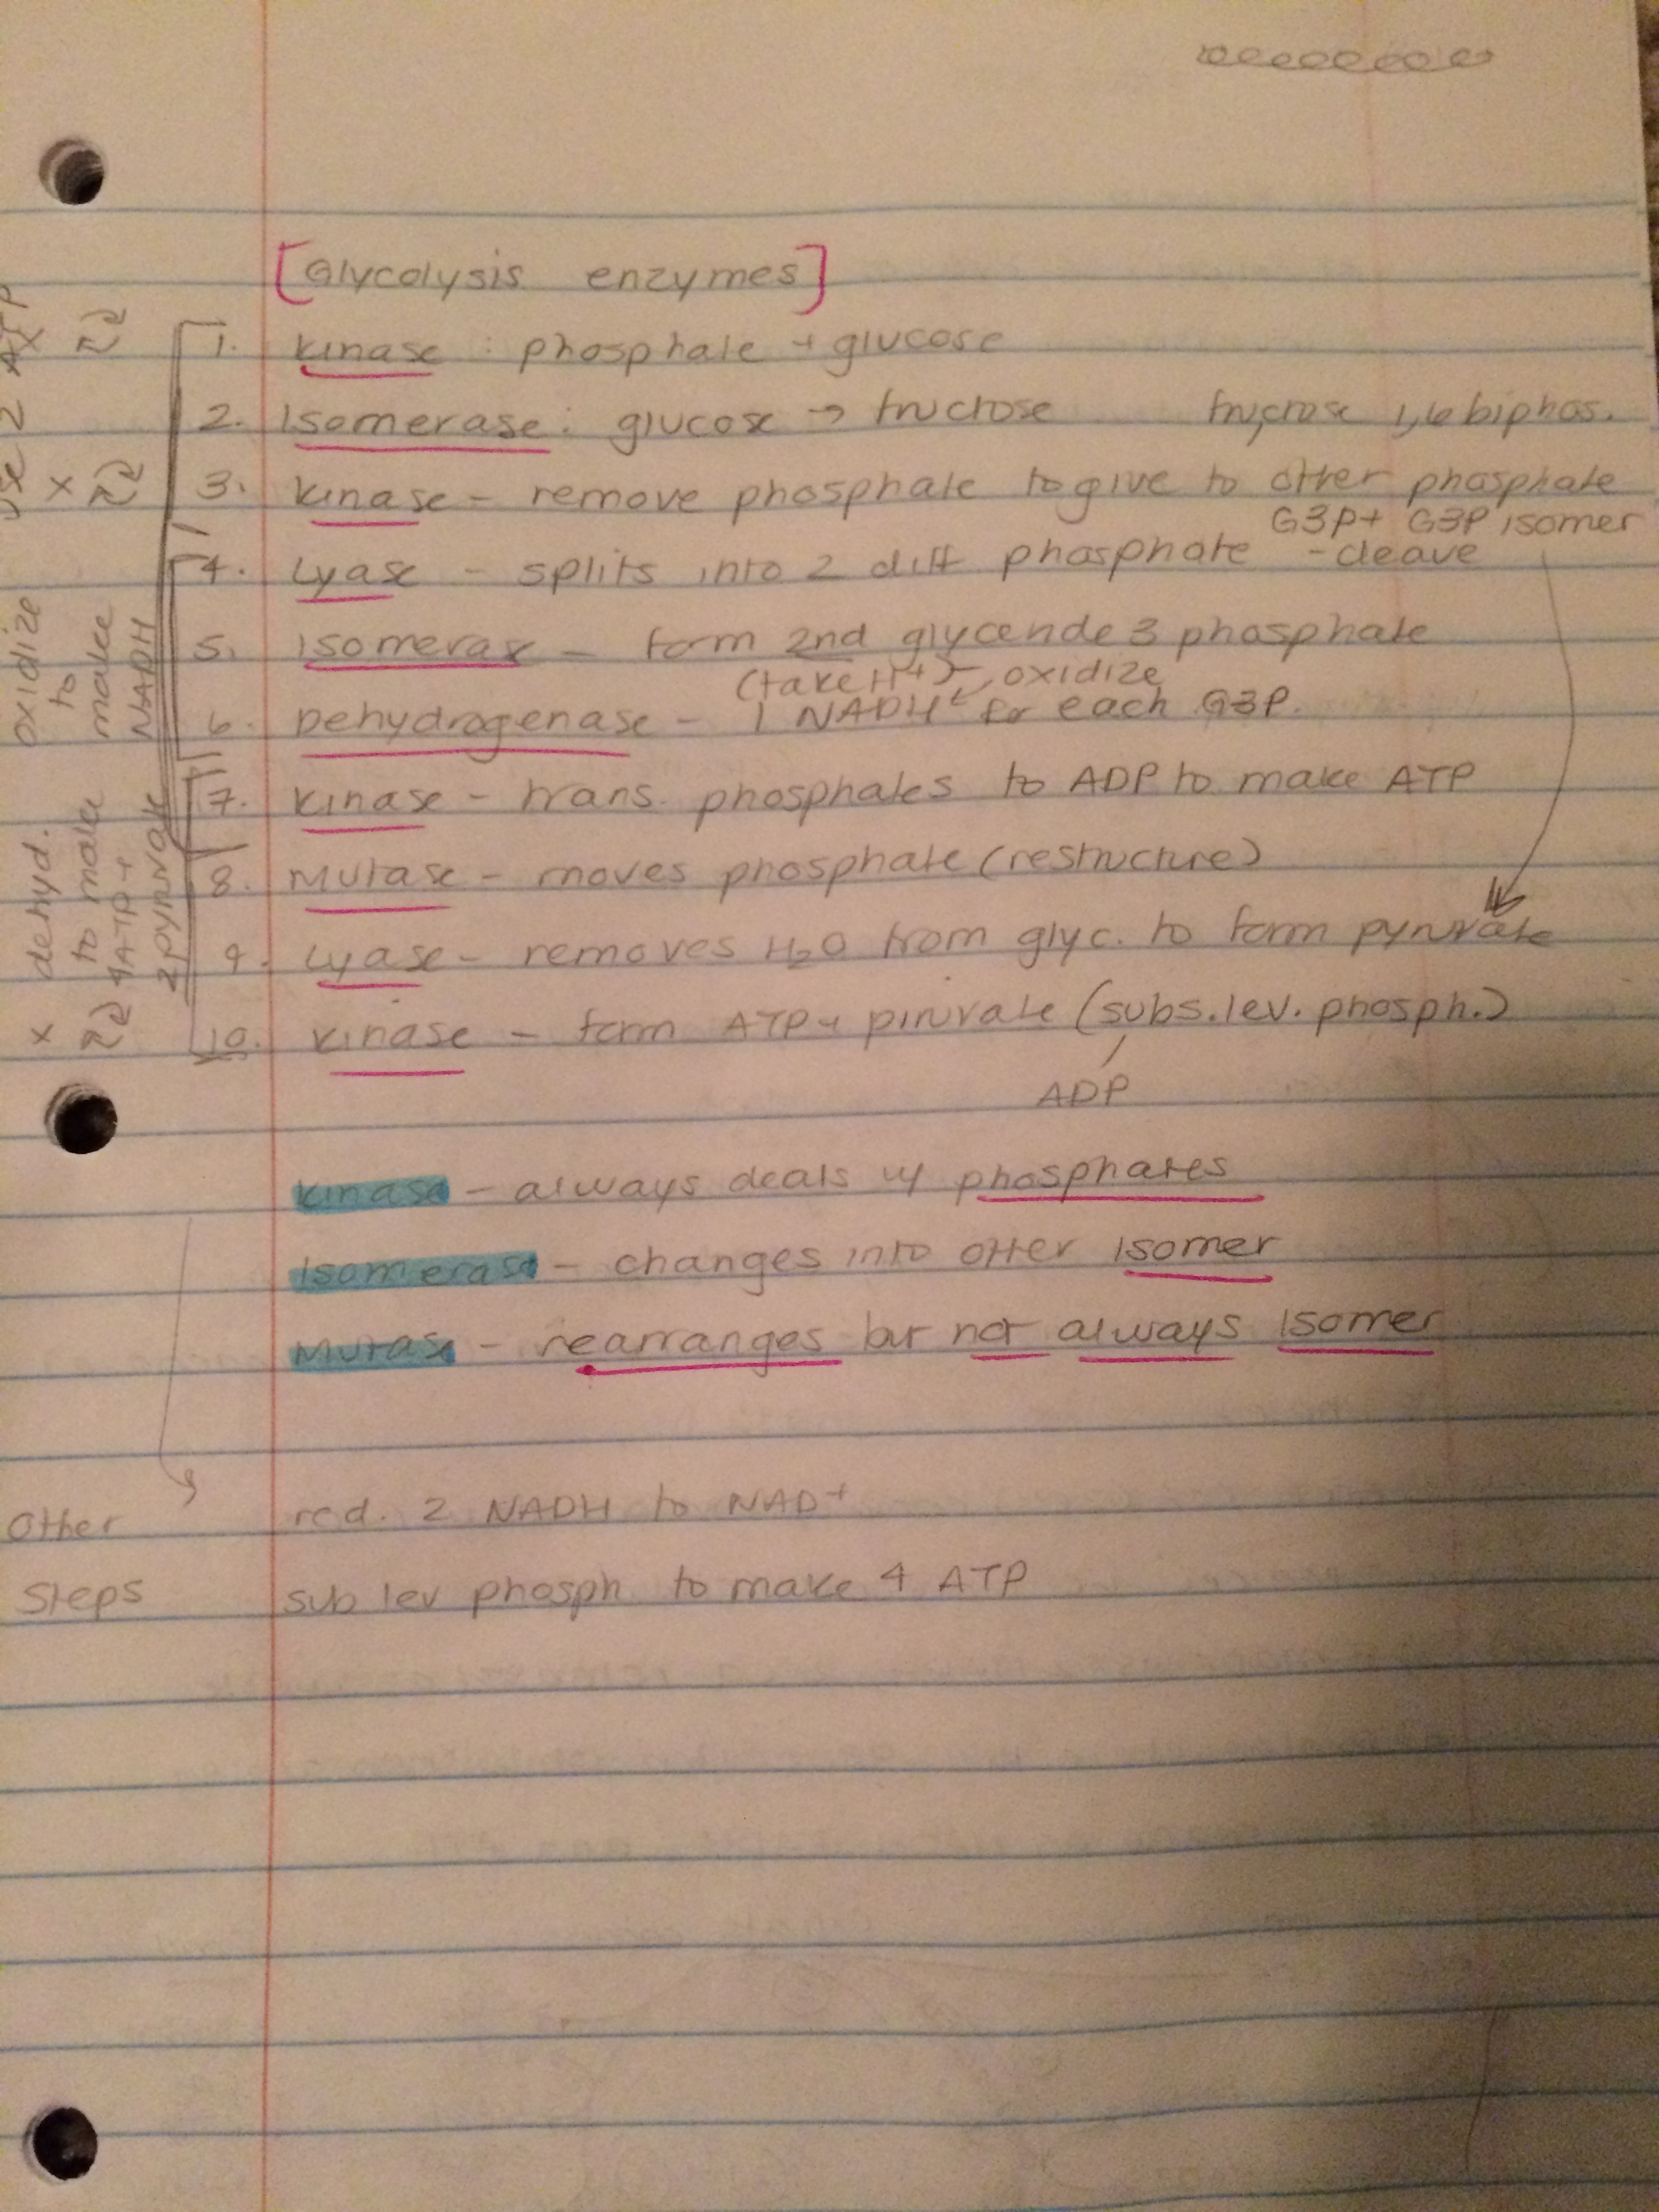 [Glycolysis enzymes]
1. Kinase : phosphate + glucose
2. Isomerase : glucose → fructose fructose 1,6 biphos.
3. Kinase - remove phosphate to give to other phosphate
G3P + G3P isomer
4. Lyase - splits into 2 diff phosphate - cleave
5. Isomerase - form 2nd glycende 3 phosphate
(take H+) oxidize
6. Dehydrogenase - 1 NADH for each G3P.
7. Kinase - trans. phosphates to ADP to make ATP
8. Mutase - moves phosphate (restructure)
9. Lyase - removes H2O from glyc. to form pyruvate
10. Kinase - form ATP + piruvate (subs. lev. phosph.)
ADP
use 2 ATP
oxidize
to
make
NADH
x dehyd.
to make
4 ATP +
2 pyruvate
Kinase - always deals w/ phosphates
Isomerase - changes into other isomer
Mutase - rearranges but not always isomer
Other red. 2 NADH to NAD+
Steps sub lev phosph to make 4 ATP